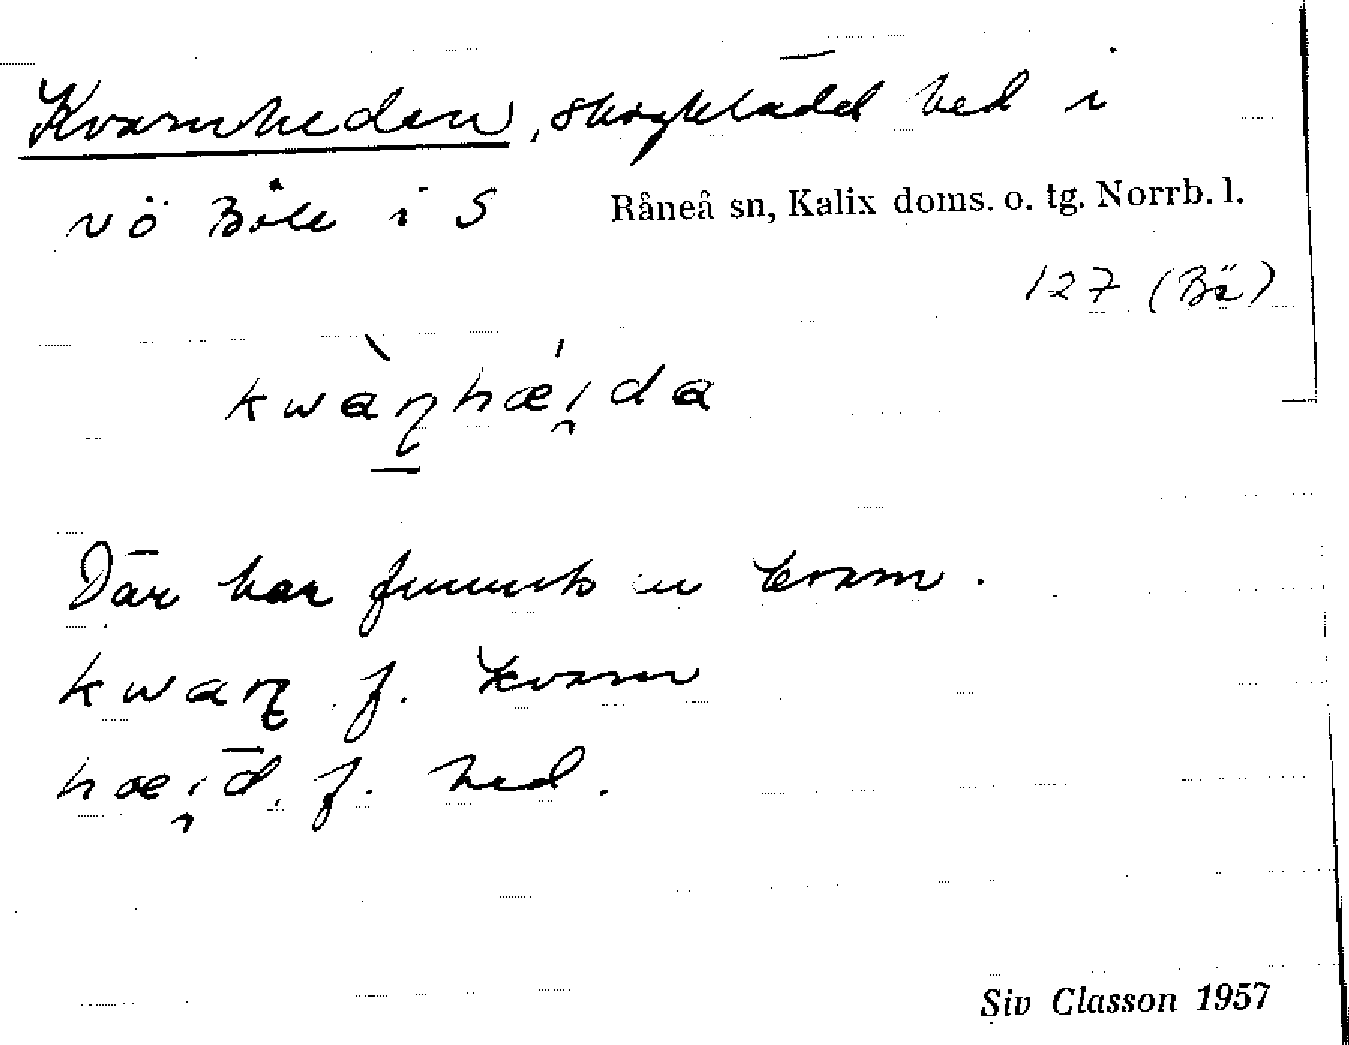 Kvarnheden, skogklädd hed i
NÖ Böle i S Råneå sn, Kalix doms. o. tg. Norrb. l.
127 (Bä)
kwàn̥hæ̀i̯da
Där har funnits en kvarn.
kwaɳ f. kvarn
hæi̯d̄, f. hed.
Siv Classon 1957